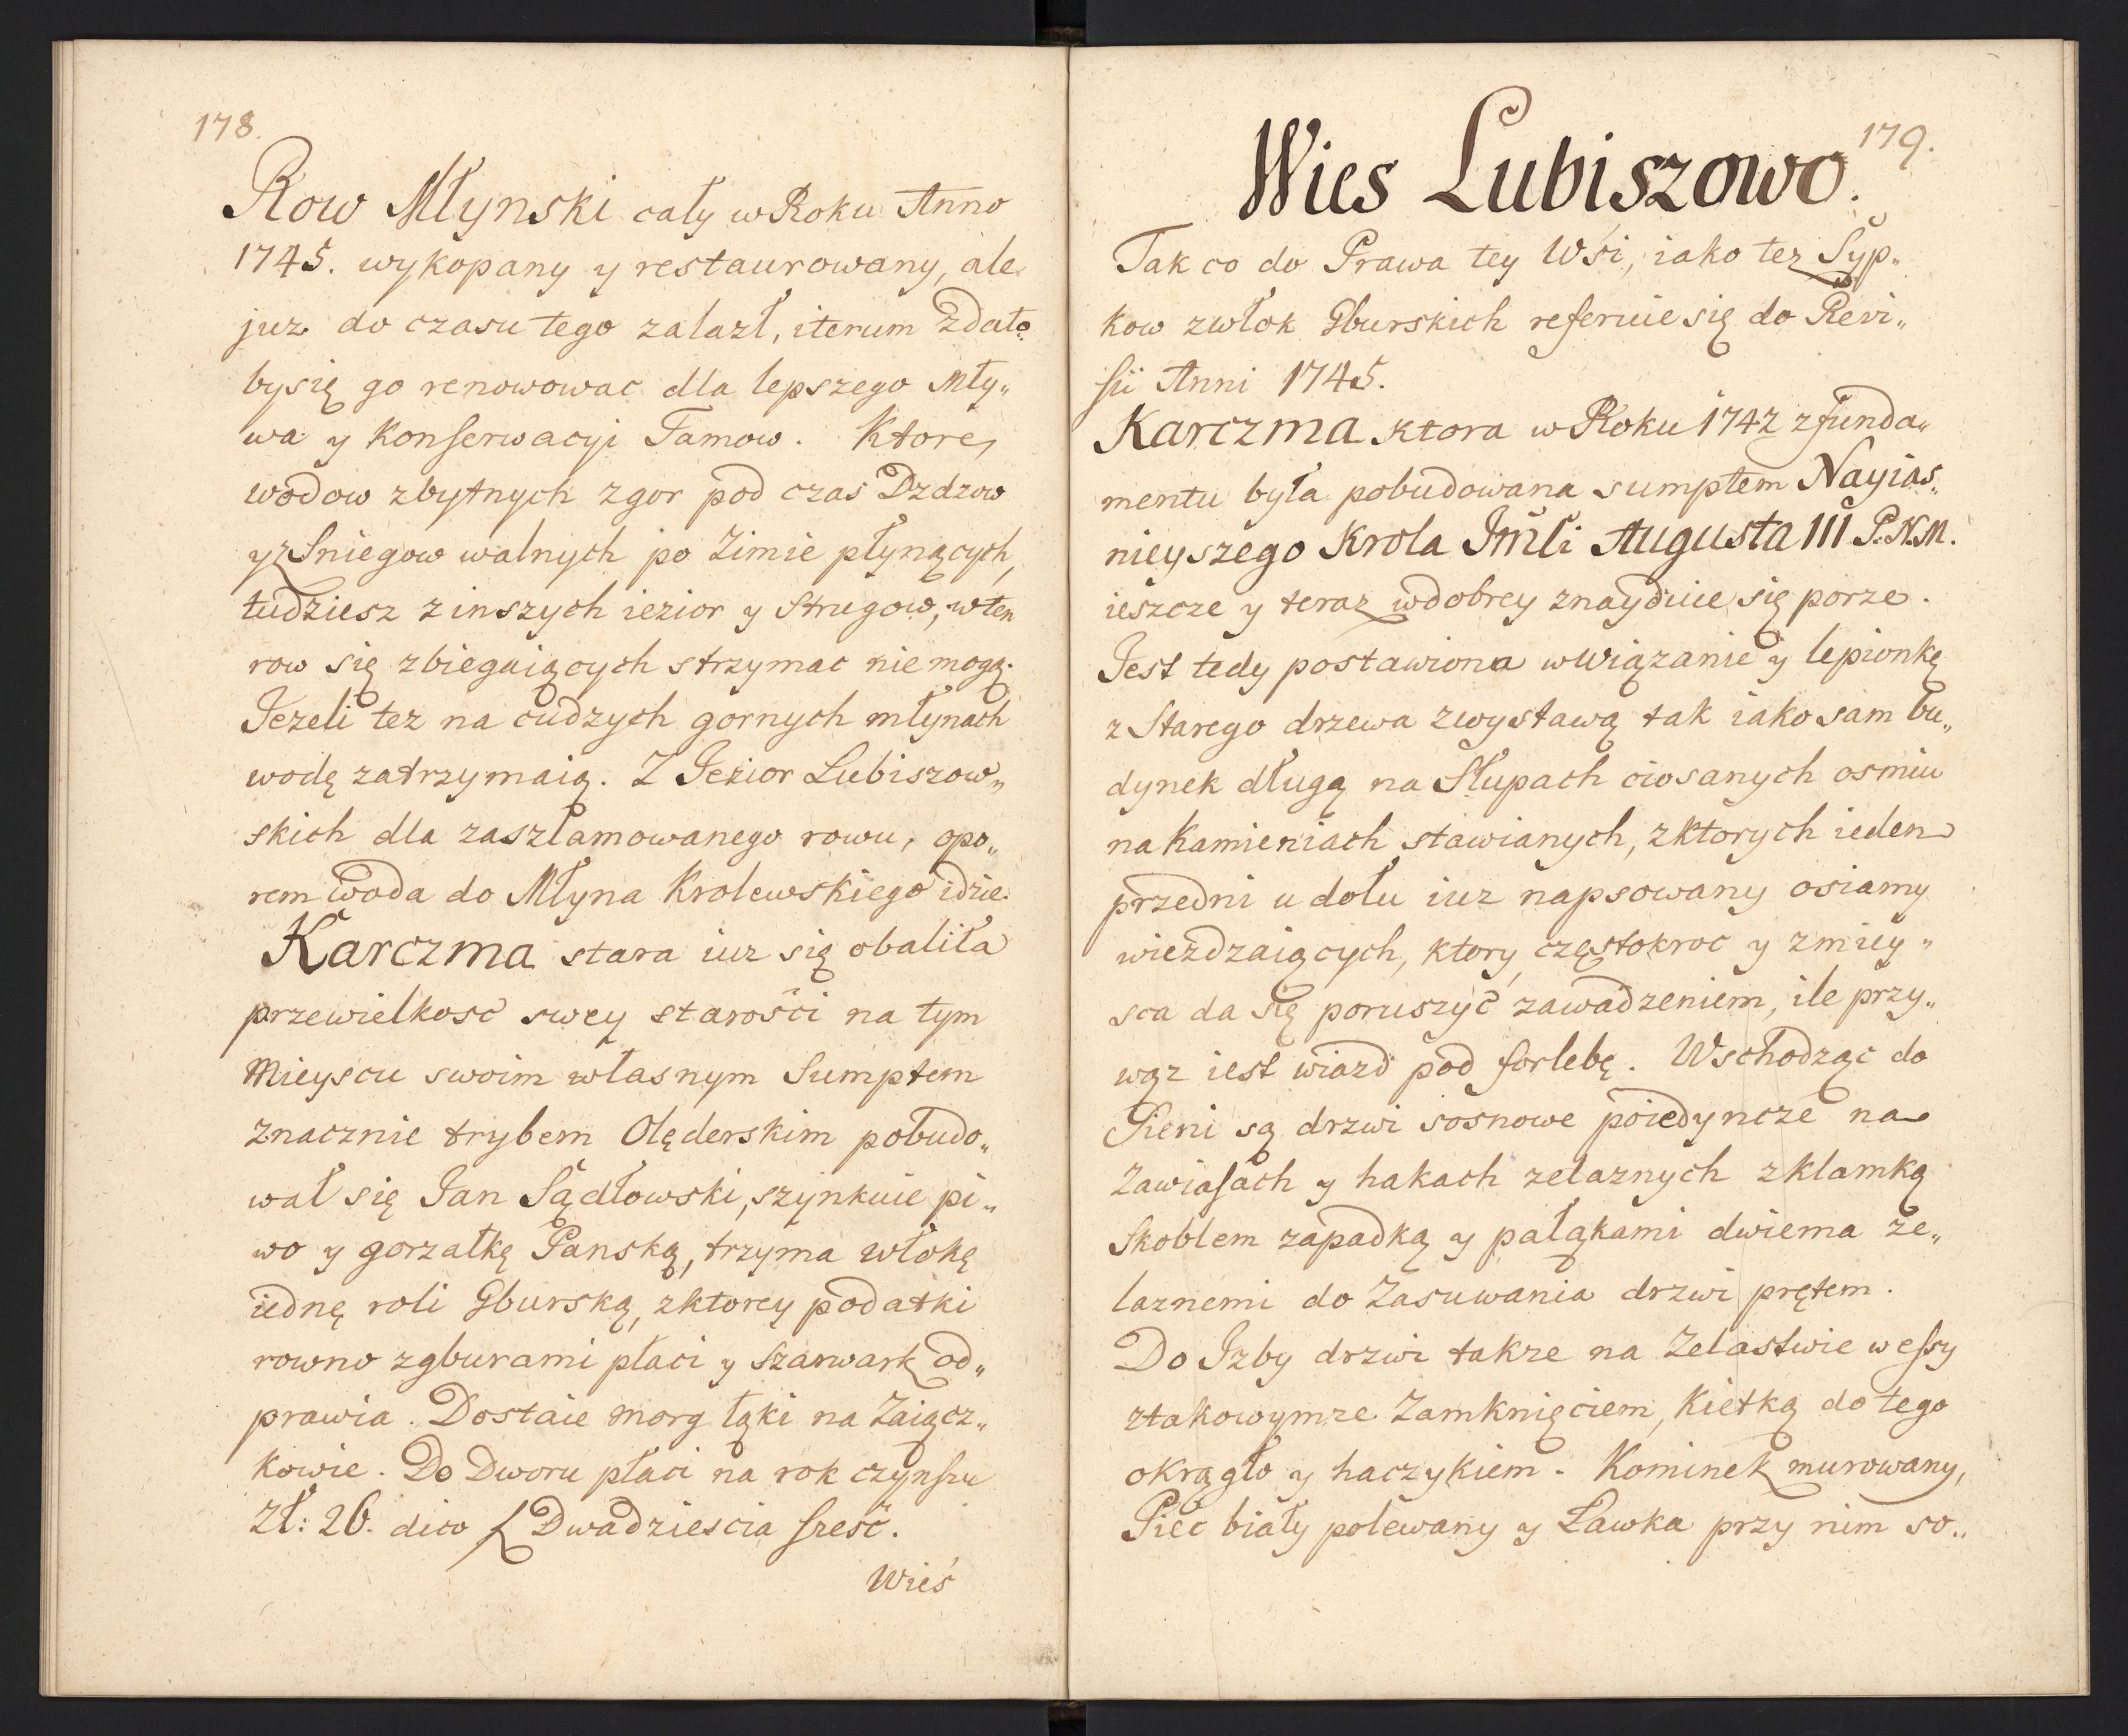 178.
Row Młynski cały w Roku Anno
1745. wykopany y restaurowany, ale
juz do czasu tego zalazł, iterum zdało
bysię go renowowac dla lepszego Mły„
wa y Konserwacyi Tamow. Ktore,
wodow zbytnych zgor pod czas Dzdzow
yz Sniegow walnych po Zimie płynących,
tudziesz z inszych iezior y Strugow, w ten
row się zbiegaiących strzymac nie mogą.
Jezeli tez na cudzych gornych młynach
wodę zatrzymaią. Z Jezior Lubiszow„
skich dla zaszlamowanego rowu, opo„
rem woda do Młyna Krolewskiego idzie.
Karczma stara iuz się obaliła
przewielkosc swey starości na tym
Mieyscu swoim własnym Sumptem
znacznie trybem Olęderskim pobudo„
wał się Jan Sądłowski, szynkuie pi„
wo y gorzałkę Panską, trzyma włokę
iednę roli Gburską, zktorey podatki
rowno zgburami płaci y Szarwark od„
prawia. Dostaie morg łąki na Zaiącz„
kowie. Do Dworu płaci na rok czynszu
Zł: 26. dico f Dwadziescia szesć.
Wieś
179.
Wies Lubiszowo.
Tak co do Prawa tey Wśi, iako tez Syp„
kow zwłok Gburskich referuie się do Revi„
sii Anni 1745.
Karczma ktora w Roku 1742 zfunda„
mentu była pobudowana sumptem Nayias„
nieyszego Krola Jmći Augusta III P.N.M.
ieszcze y teraz wdobrey znayduie się porze.
Jest tedy postawiona wwiązanie y lepionkę
z Starego drzewa zwystawą tak iako sam bu„
dynek długą na Słupach ciosanych osmiu
na Kamieniach stawianych, zktorych ieden
przedni u dołu iuz napsowany osiamy
wiezdzaiących, ktory częstokroc y zmiey„
sca da się poruszyć zawadzeniem, ile przy„
wąz iest wiazd pod forlebę. Wschodząc do
Sieni są drzwi sosnowe poiedyncze na
Zawiasach y hakach zelaznych zklamką
Skoblem zapadką y pałąkami dwiema ze„
laznemi do Zasuwania drzwi prętem.
Do Izby drzwi takze na Zelastwie wessy
ztakowymze Zamknięciem, Kietką do tego
okrągło y haczykiem. Kominek murowany,
Piec biały polewany y Ławka przy nim so„